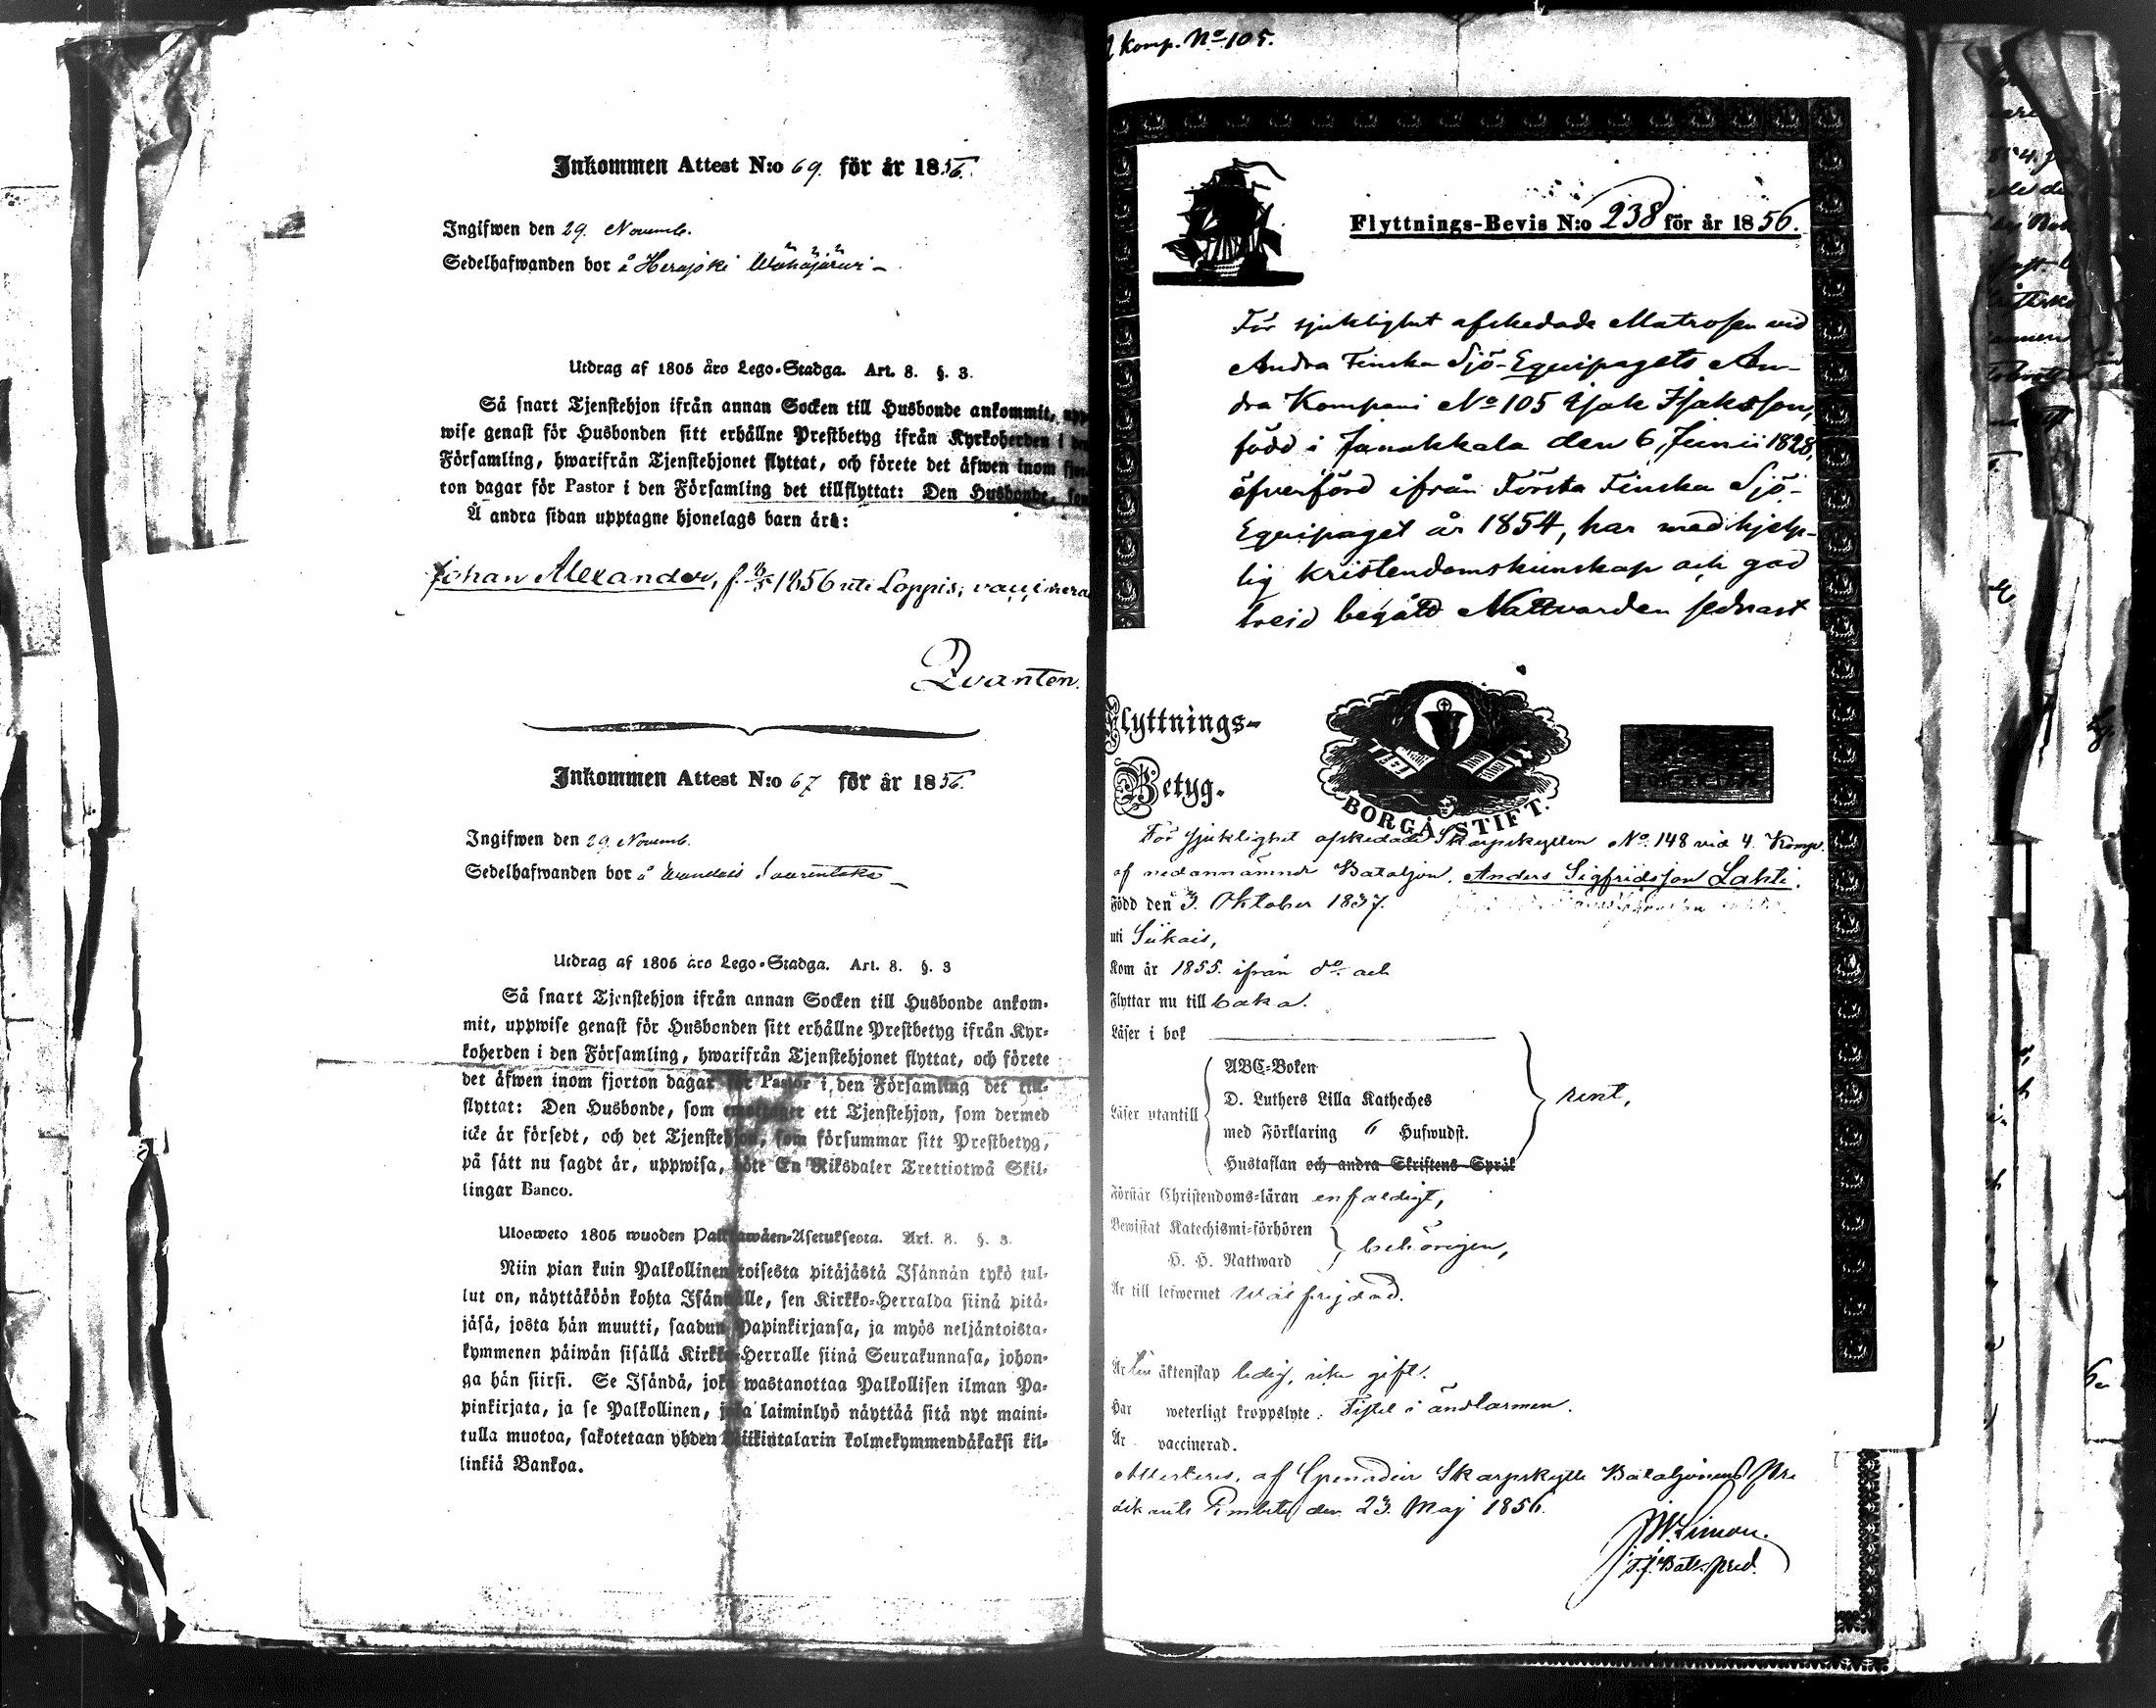 Inkommen Attest N:o 69. för år 1856.
Ingifwen den 29. Novemb.
Sedelhafwanden bor å Herajoki Wähäjärwi
Utdrag af 1805 års Lego-Stadga. Art. 8. §. 3.
Så snart Tjenstehjon ifrån annan Socken till Husbonde ankommit,
wise genast för Husbonden sitt erhållne Prestbetyg ifrån Kyrkoherden i
Församling, hwarifrån Tjenstehjonet flyttat, och förete det äfwen inom
ton dagar för Pastor i den Församling det tillflyttat: Den Husbonde,
Å andra sidan upptagne hjonelags barn äro:
Johan Alexander, f. 1856 uti Loppis;
Qvanten.
Inkommen Attest N:o 67 för år 1856.
Ingifwen den 29. Novemb.
Sedelhafwanden bor å
Utdrag af 1805 års Lego-Stadga. Art. 8. §. 3
Så snart Tjenstehjon ifrån annan Socken till Husbonde ankom-
mit, uppwise genast för Husbonden sitt erhållne Prestbetyg ifrån Kyr-
koherden i den Församling, hwarifrån Tjenstehjonet flyttat, och förete
det äfwen inom fjorton dagar för Pastor i den Församling det till-
flyttat: Den Husbonde, som emottager ett Tjenstehjon, som dermed
icke är försedt, och det Tjenstehjon, som försummar sitt Prestbetyg,
på sätt nu sagdt är, uppwisa, böte En Riksdaler Trettiotwå Skil-
lingar Banco.
Ulosweto 1805 wuoden Palkkawäen-Asetuksesta. Art. 8. §. 3.
Niin pian kuin Palkollinen toisesta pitäjästä Isännän tykö tul-
lut on, näyttäköön kohta Isännälle, sen Kirkko-Herralda siinä pitä-
jäsä, josta hän muutti, saadun Papinkirjansa, ja myös neljäntoista-
kymmenen päiwän sisällä Kirkko-Herralle siinä Seurakunnasa, johon-
ga hän siirsi. Se Isändä, joka wastanottaa Palkollisen ilman Pa-
pinkirjata, ja se Palkollinen, joka laiminlyö näyttää sitä nyt maini-
tulla muotoa, sakotetaan yhden Riikintalarin kolmekymmendäkaksi kil-
linkiä Bankoa.
komp. No 105.
Flyttnings-Bevis N:o 238 för år 1856.
För sjuklighet afskedade Matrosen vid
Andra Finska Sjö-Equipagets An-
dra Kompani No 105 Isak Isaksson,
född i Janakkala den 6 Junii 1828,
öfverförd ifrån Första Finska Sjö-
Equipaget år 1854, har med hjelp-
lig kristendomskunskap och god
freid begått Nattvarden sednast
Flyttnings-
Betyg.
BORGÅ STIFT.
För sjuklighet afskedade Skarpskytten No. 148 vid 4. Komp.
af nedannämnde Bataljon, Anders Sigfridsson Lahti.
Född den 3. Oktober 1837.
uti Siikais,
Kom år 1855. ifrån do. och
Flyttar nu till baka.
Läser i bok
Läser utantill
ABC-Boken
D. Luthers Lilla Katheches
med Förklaring 6 Hufwudst.
Hustaflan och andra Skriftens Språk
rent,
Förstår Christendoms-läran enfaldigt,
Bewistat Katechismi-förhören
H. H. Nattward
behörigen,
Är till lefwernet wälfrejdad.
Är till äktenskap ledig, icke gift.
Har weterligt kroppslyte. Fistel i ändtarmen.
Är vaccinerad.
Attesteras, af Grenadier Skarpskytte Bataljonens Pre
dikants Embetet den 23. Maj 1856.
T. f. Bat. pred.